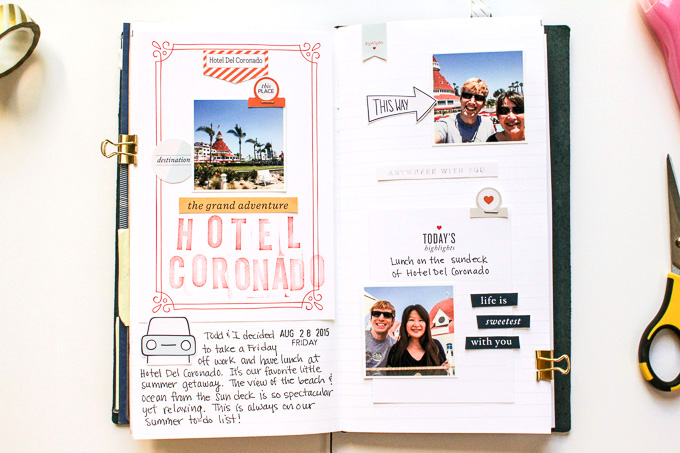 Hotel Del Coronado
this
PLACE
destination
the grand adventure
HOTEL
CORONADO
Todd & I decided AUG 28 2015
to take a Friday FRIDAY
off work and have lunch at
Hotel Del Coronado. It's our favorite little
summer getaway. The view of the beach &
ocean from the sun deck is so spectacular
yet relaxing. This is always on our
summer to do list!
highlight
THIS WAY
ANYWHERE WITH YOU
TODAY'S
highlights
Lunch on the sundeck
of Hotel Del Coronado
life is
sweetest
with you